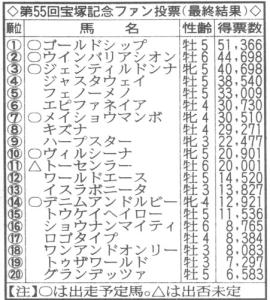 ◇第55回宝塚記念ファン投票(最終結果)◇
順位 馬名 性齢 得票数
① ○ゴールドシップ 牡5 51,366
② ○ウインバリアシオン 牡6 44,698
③ ○ジェンティルドンナ 牝5 40,698
④ ジャスタウェイ 牡5 38,540
⑤ フェノーメノ 牡5 33,009
⑥ エピファネイア 牡4 30,730
⑦ ○メイショウマンボ 牝4 30,510
⑧ キズナ 牡4 29,271
⑨ ハープスター 牝3 22,477
⑩ ○ヴィルシーナ 牝5 20,901
⑪ △トーセンラー 牡6 20,001
⑫ ワールドエース 牡5 14,520
⑬ イスラボニータ 牡3 13,827
⑭ ○デニムアンドルビー 牝4 12,921
⑮ トウケイヘイロー 牡5 11,536
⑯ ショウナンマイティ 牡6 8,765
⑰ ロゴタイプ 牡4 8,384
⑱ ワンアンドオンリー 牡3 8,083
⑲ トゥザワールド 牡3 7,297
⑳ グランデッツァ 牡5 6,583
【注】○は出走予定馬。△は出否未定